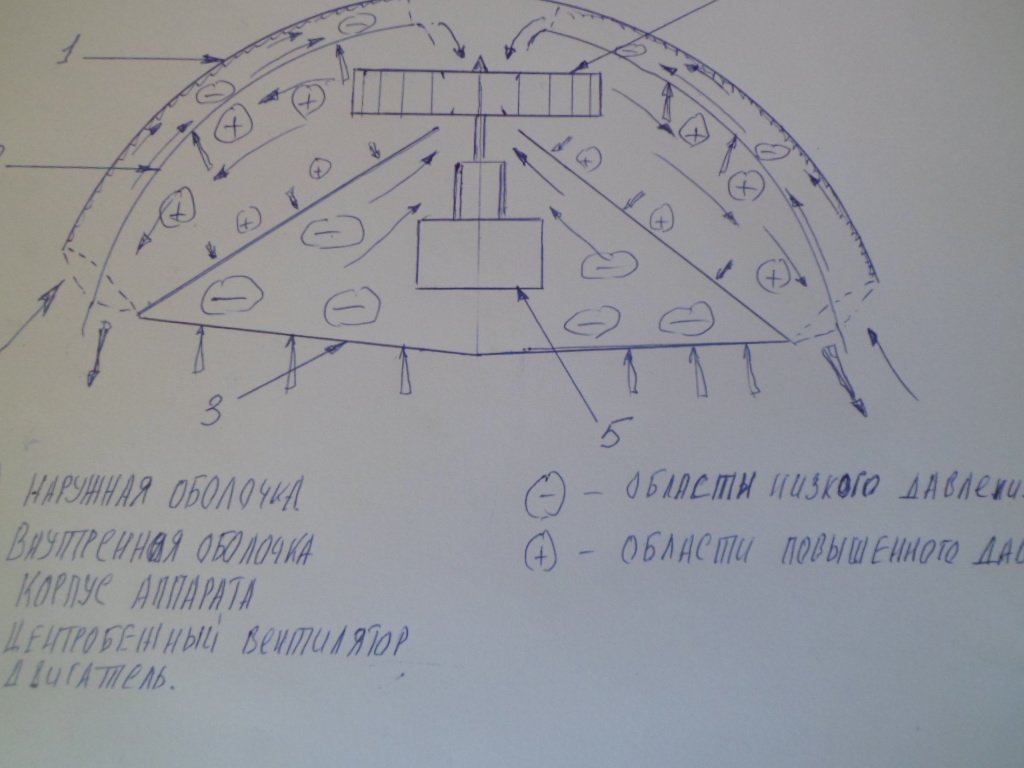 1
3
5
НАРУЖНАЯ ОБОЛОЧКА
ВНУТРЕННЯЯ ОБОЛОЧКА
КОРПУС АППАРАТА
ЦЕНТРОБЕЖНЫЙ ВЕНТИЛЯТОР
ДВИГАТЕЛЬ.
(-) - ОБЛАСТИ НИЗКОГО ДАВЛЕНИ
(+) - ОБЛАСТИ ПОВЫШЕННОГО ДАВ